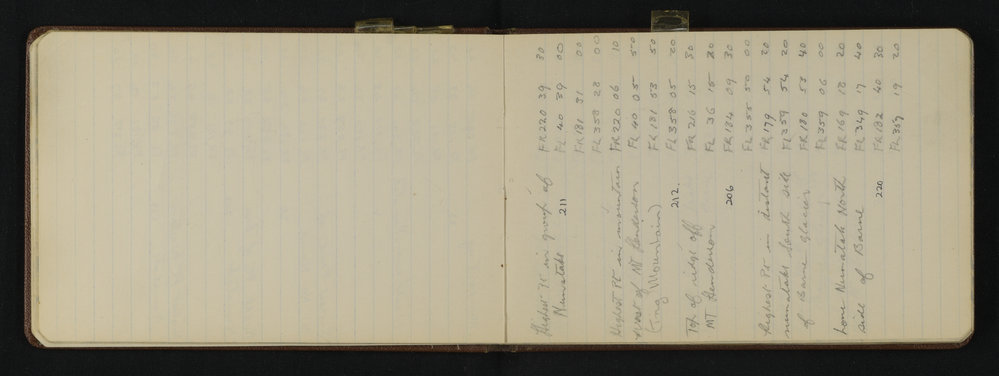 Highest Pt in group of FR 220 39 30
Nunataks 211 FL 40 39 00
FR 181 31 00
FL 358 28 00
Highest Pt in mountain FR 220 06 10
West of Mt Henderson FL 40 05 50
(mg Mountain) FR 181 53 50
212 FL 358 05 20
Top of ridge off FR 216 15 30
MT Henderson FL 36 15 20
206 FR 184 09 30
FL 355 50 00
Highest Pt in distant FR 179 54 20
nunataks South side FL 359 54 20
of Barne Glacier FR 180 53 40
FL 359 06 00
Lone Nunatak North FR 169 18 20
side of Barne FL 349 17 40
220 FR 182 40 30
FL 357 19 20